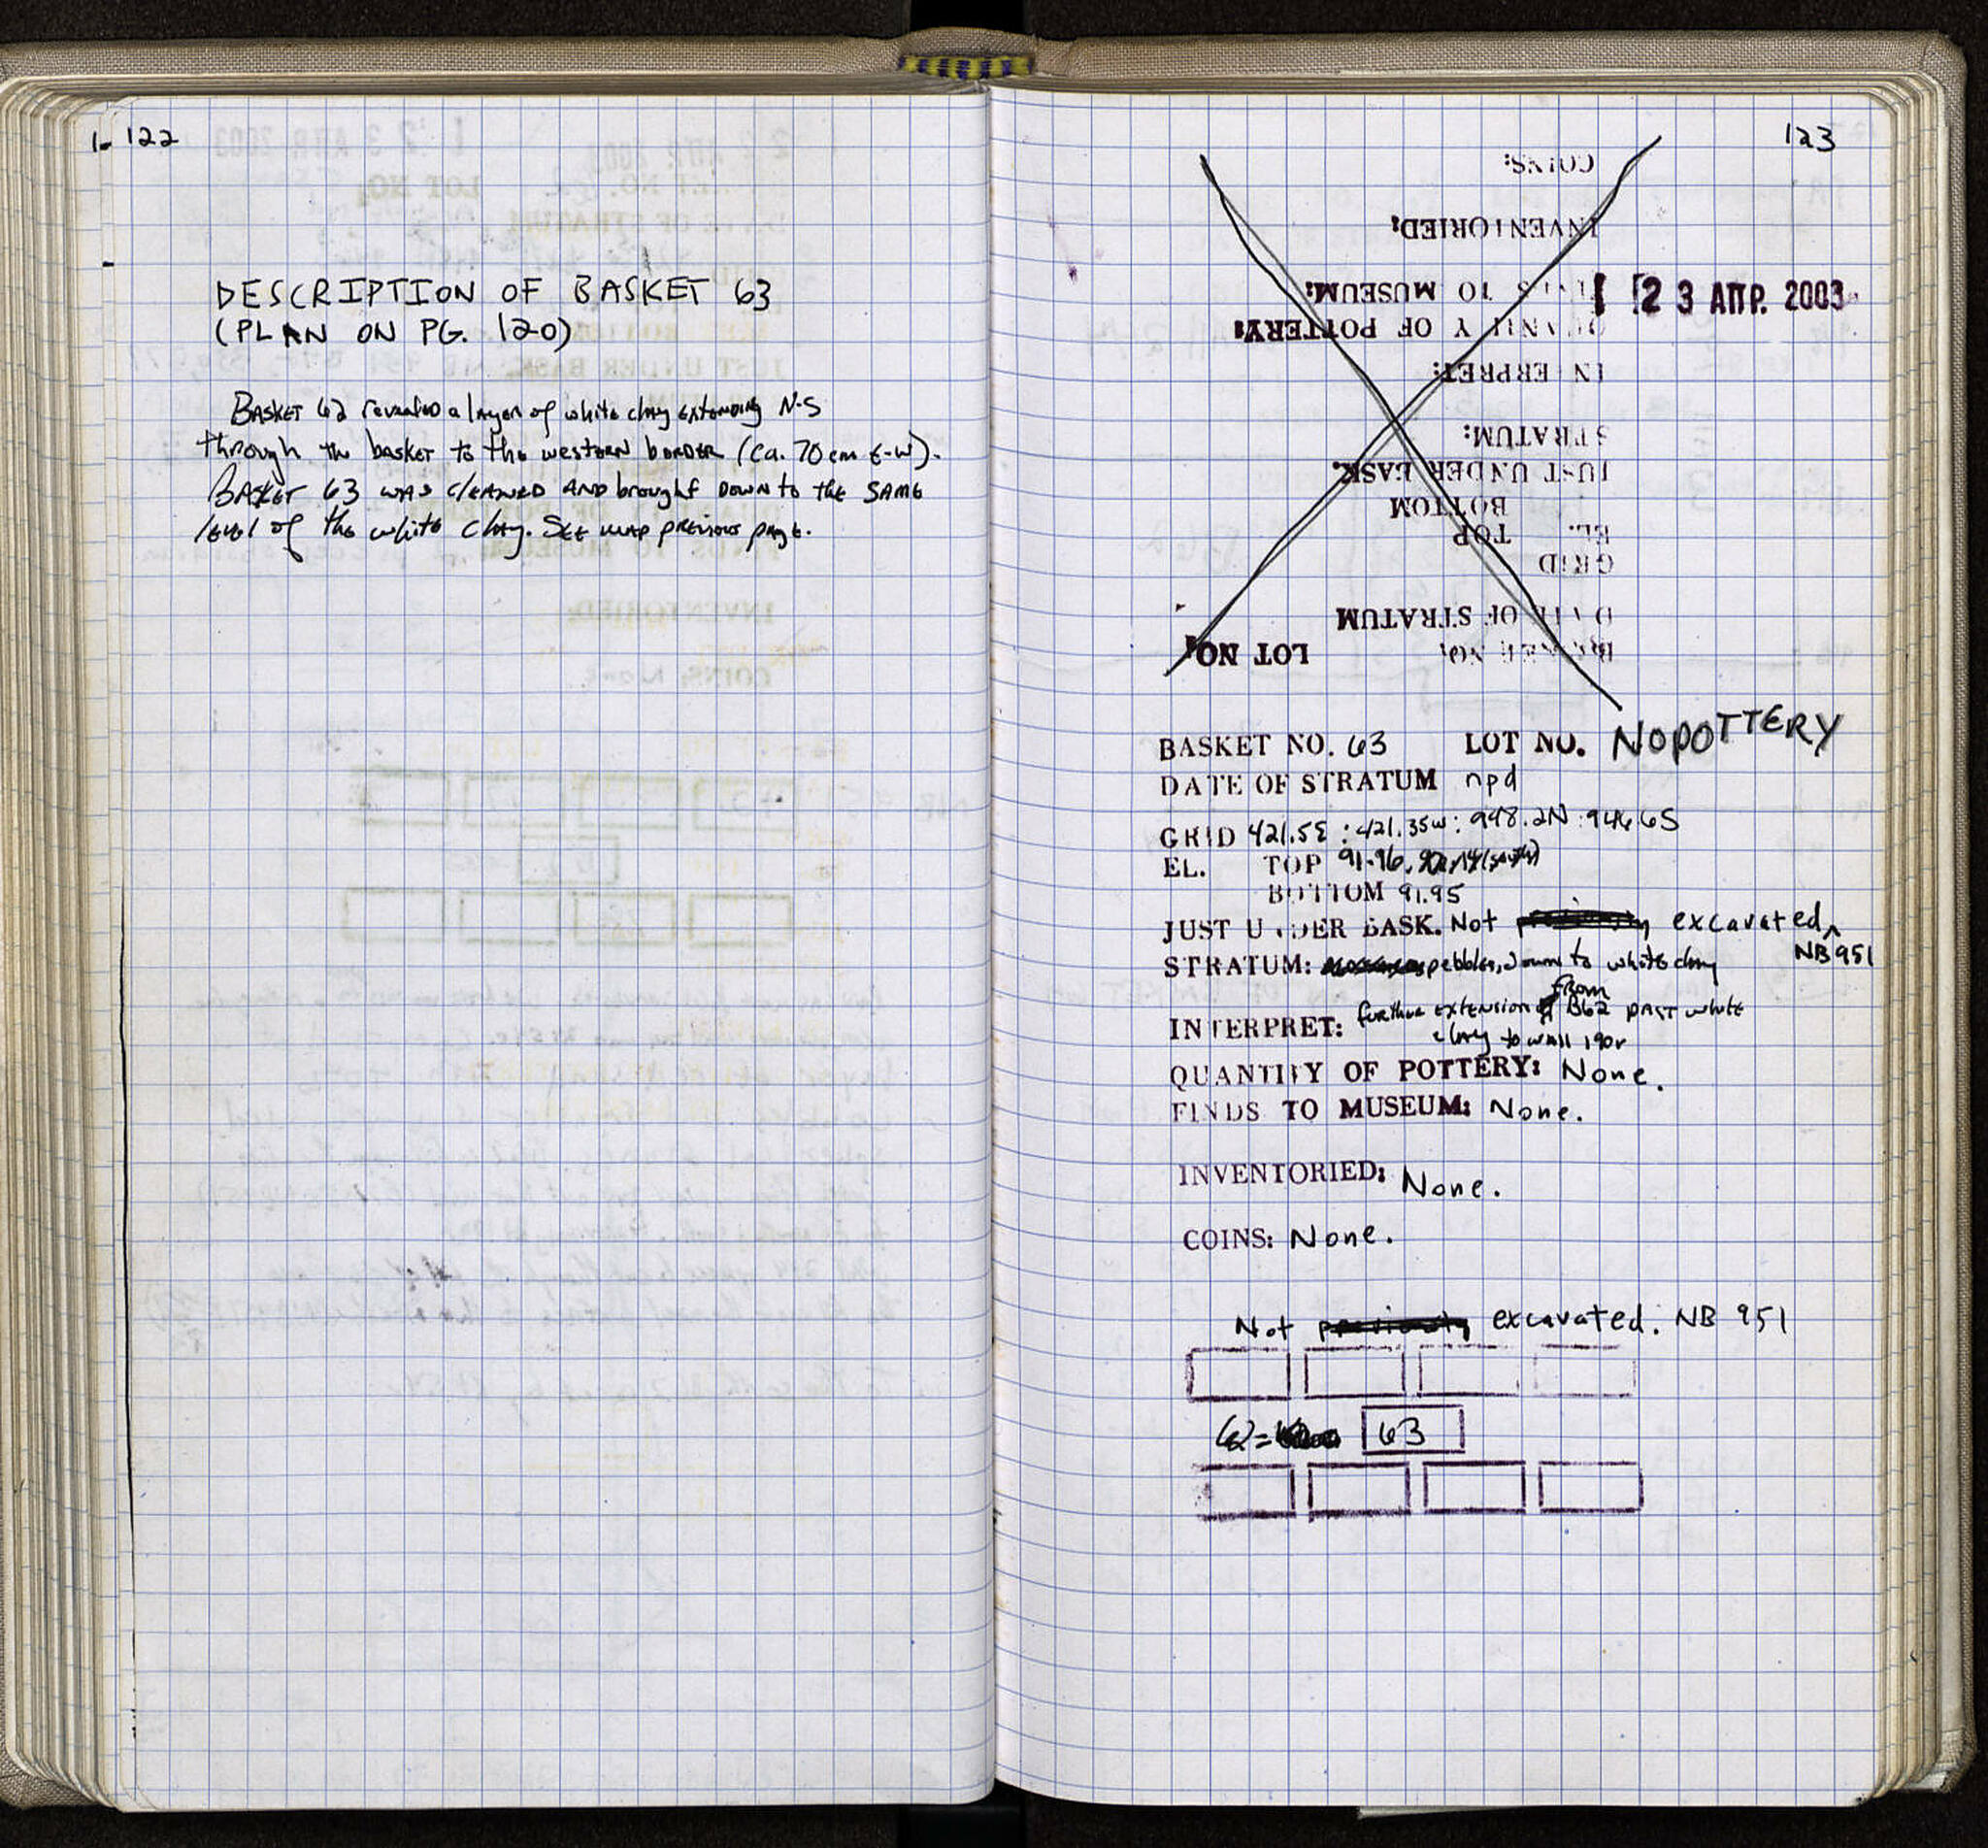 122
DESCRIPTION OF BASKET 63
(PLAN ON PG. 120)
BASKET 62 revealed a layer of white clay extending N-S
through the basket to the western border (ca. 70 cm E-W).
BASKET 63 was cleaned and brought down to the same
level of the white clay. See map previous page.
123
COINS:
INVENTORIED:
TO MUSEUM:
23 ΑΠΡ. 2003
QUANTITY OF POTTERY:
INTERPRET:
STRATUM:
JUST UNDER BASK.
BOTTOM
EL. TOP
GRID
DATE OF STRATUM
BASKET NO. LOT NO.
BASKET NO. 63 LOT NO. NO POTTERY
DATE OF STRATUM npd
GRID 421.5E : 421.35W : 948.2N : 946.6S
EL. TOP 91.96,
BOTTOM 91.95
JUST UNDER BASK. Not excavated, NB 951
STRATUM: pebbles, down to white clay
INTERPRET: further extension from B62 past white
clay to wall 1901
QUANTITY OF POTTERY: None.
FINDS TO MUSEUM: None.
INVENTORIED: None.
COINS: None.
Not previously excavated. NB 951
62= 63